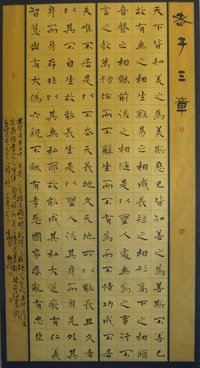 老子三章
天下皆知美之為美斯惡已皆知善之為善斯不善已
故有無之相生難易之相成長短之相形高下之相傾
音聲之相龢前後之相隨是以聖人處無為之事行不
言之教萬物作而不辭生而不有為而不恃功成不居
夫惟不居是以不去天長地久天地所以能長且久者
以其不自生故能長生是以聖人後其身而身先外其
身而身存非以其無私耶故能成其私大道廢有仁義
智慧出有大偽六親不龢有孝慈國家昏亂有忠臣